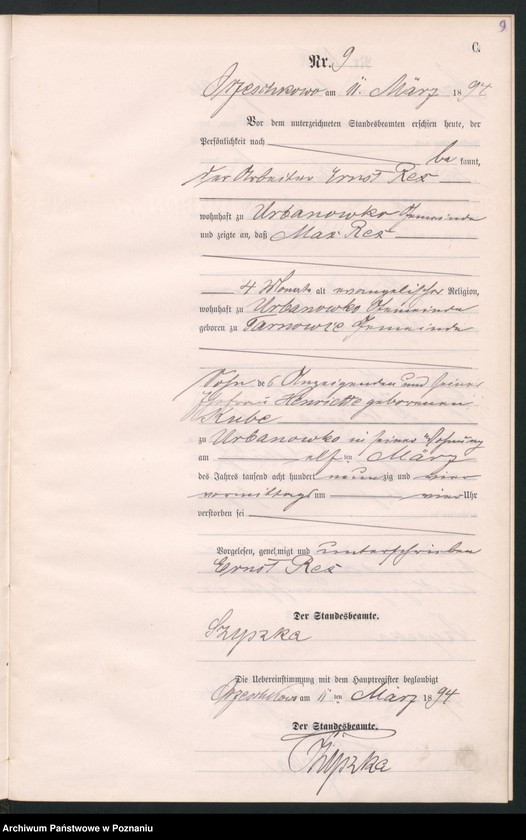 9
C.
Nr. 9
Orzeschkowo am 11. März 1894
Vor dem unterzeichneten Standesbeamten erschien heute, der
Persönlichkeit nach
be kannt,
der Arbeiter Ernst Rex
wohnhaft zu Urbanowko Gemeinde
und zeigte an, daß Max Rex
4 Monate alt evangelischer Religion,
wohnhaft zu Urbanowko Gemeinde
geboren zu Tarnowie Gemeinde
Sohn des Anzeigenden und seiner
Ehefrau Henriette geborenen
Kube
zu Urbanowko in seiner Wohnung
am elf ten März
des Jahres tausend acht hundert neunzig und vier
vormittags um vier Uhr
verstorben sei
Vorgelesen, genehmigt und unterschrieben
Ernst Rex
Der Standesbeamte.
Szyszka
Die Uebereinstimmung mit dem Hauptregister beglaubigt
Orzeschkowo am 11 ten März 1894
Der Standesbeamte.
Szyszka
Archiwum Państwowe w Poznaniu